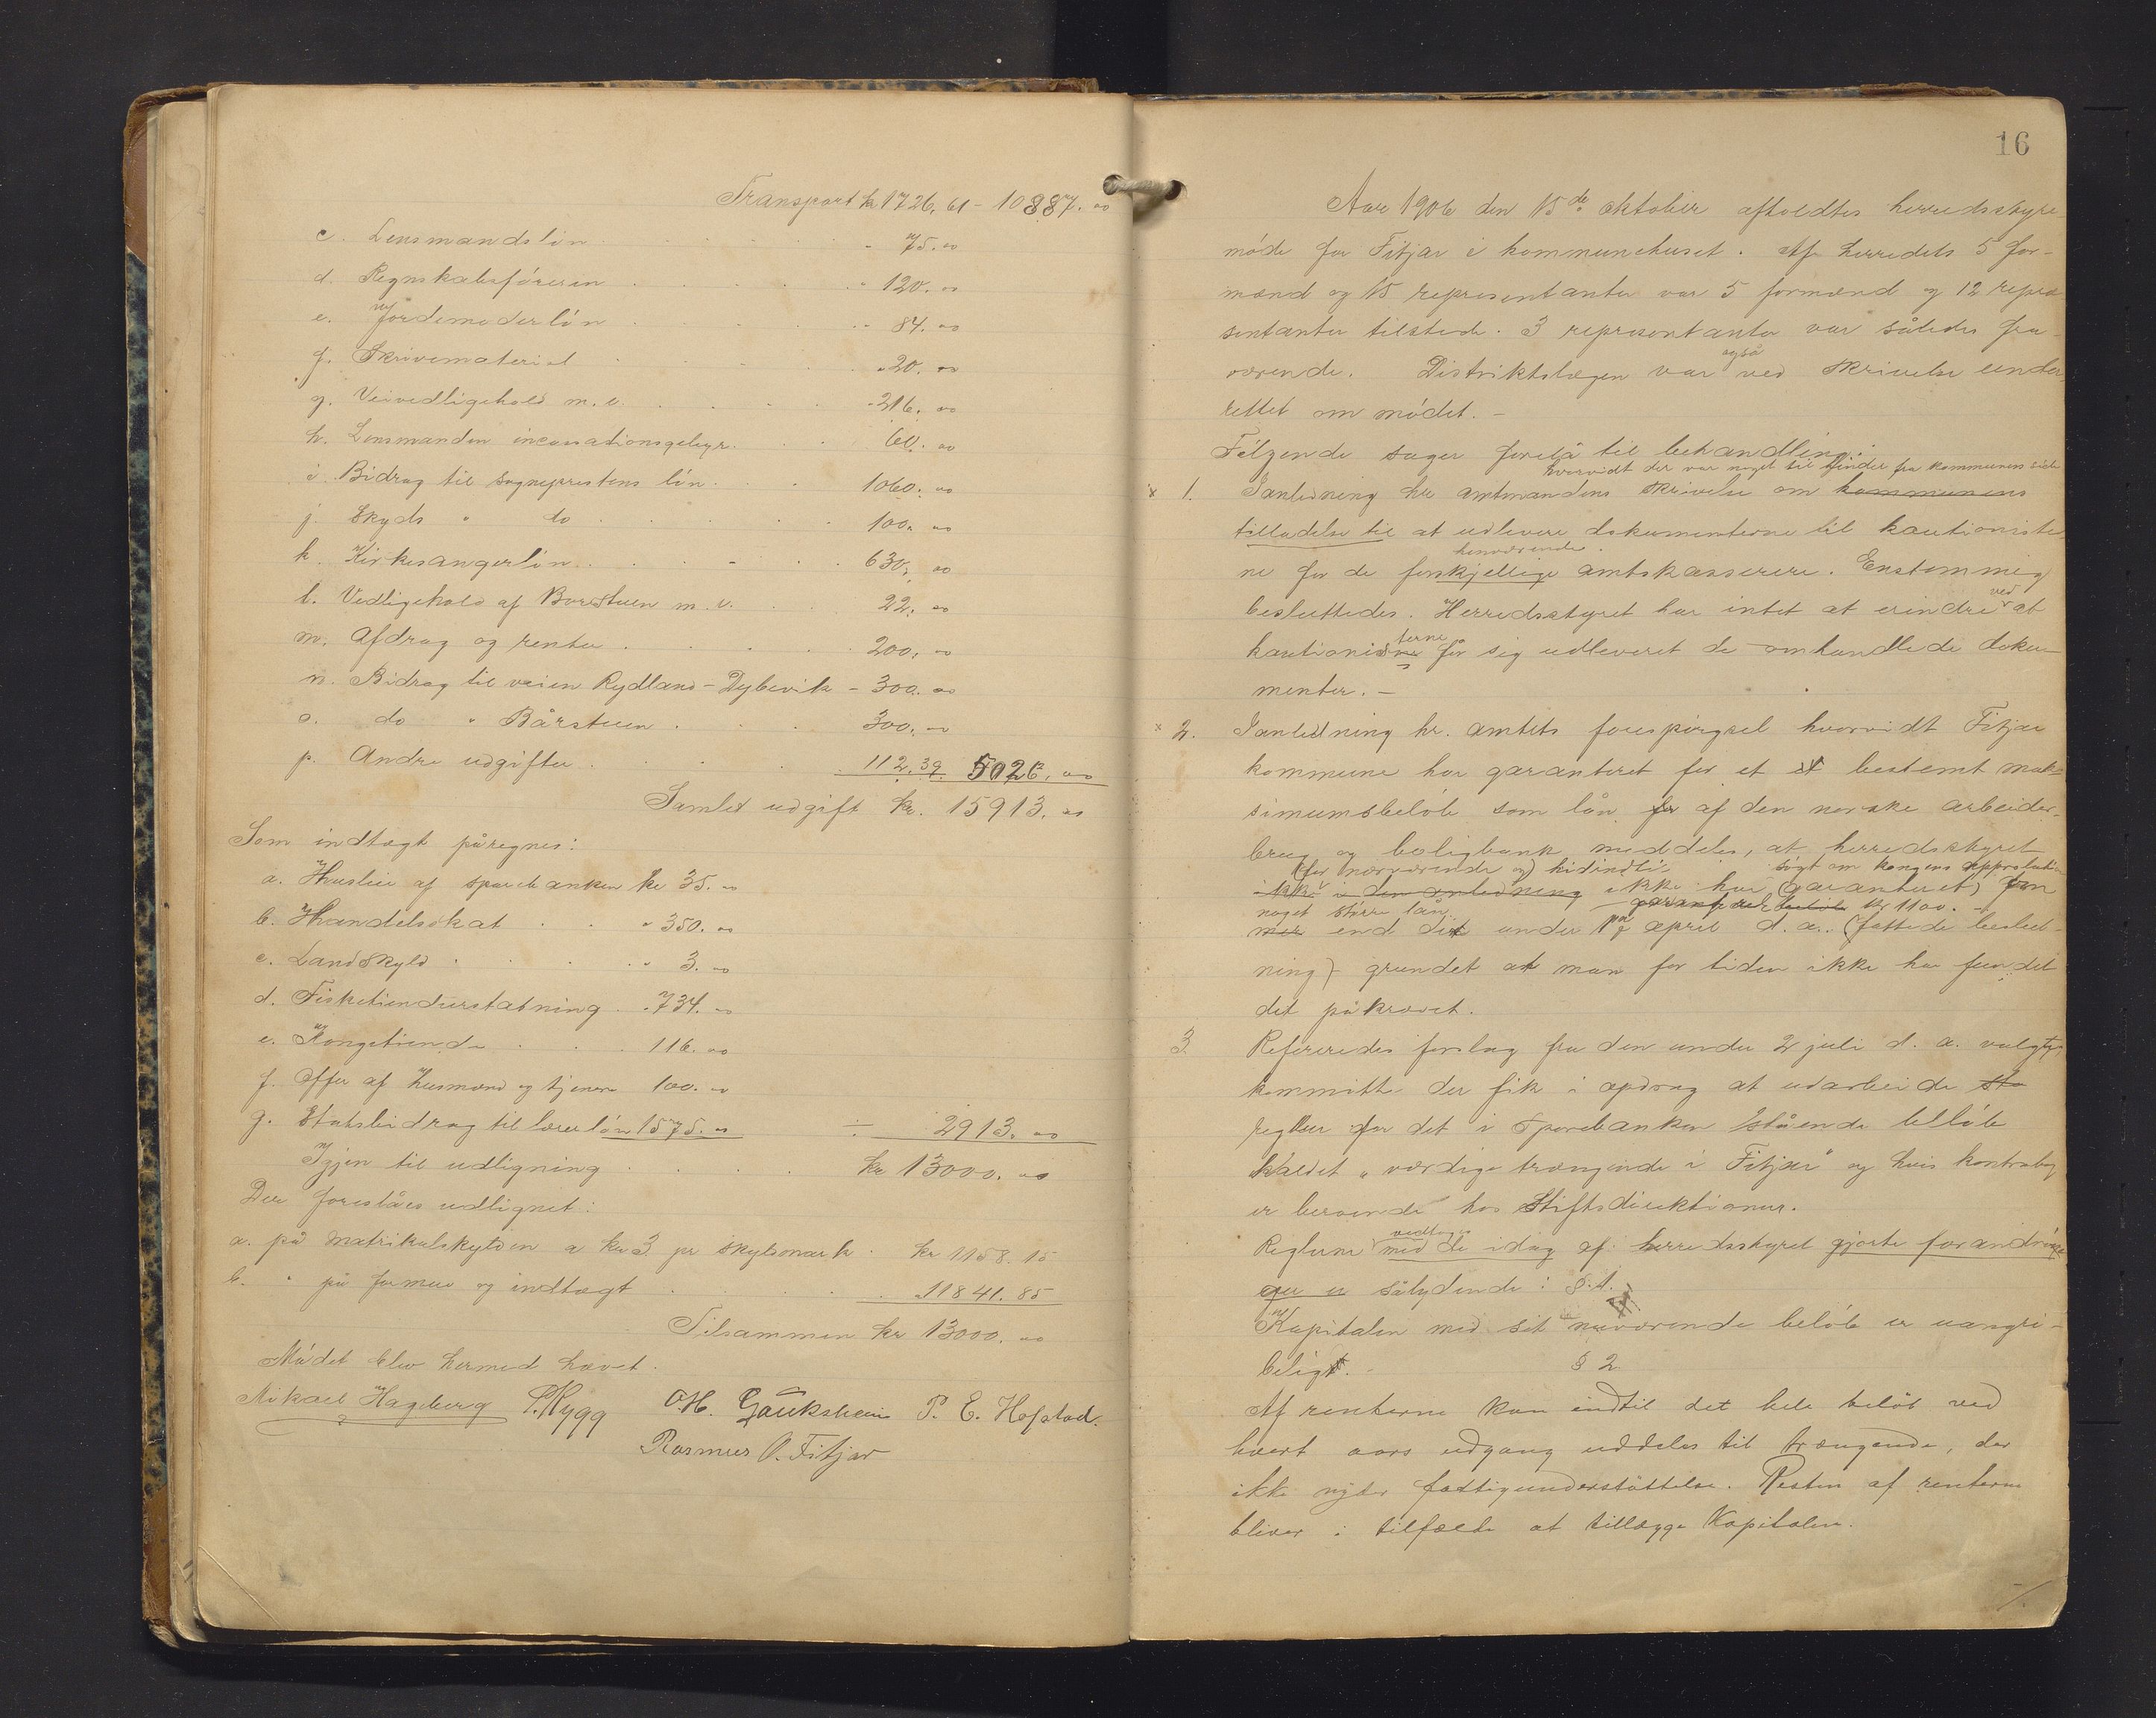 Transport kr 1726,61 - 10887.00
c. Lensmandsløn . . . . . . - 75.00
d. Regnskabsføreren . . . . . " 120.00
e. Jordemoderløn . . . . - 84.00
f. Skrivematerial . . . . " 20.00
g. Veivedligehold m. v. . . . . - 216.00
h. Lensmanden incassationsgebyr. . . 60.00
i. Bidrag til sogneprestens løn . . . 1060.00
j. Skyds " do . . . . . 100.00
k. Kirkesangerløn . . . - . . 630.00
l. Vedligehold af Borestuen m. v. . . 22.00
m. Afdrag og renter . . . . . 200.00
n. Bidrag til veien Rydland - Dybevik - 300.00
o. do " Bårstuen . . . 300.00
p. Andre udgifter . . . . 112.39 5026.00
Samlet udgift kr. 15913.00
Som indtægt påregnes:
a. Husleie af sparebanken kr 35.00
b. Handelsskat . . " 350.00
c. Landskyld . . . " 3.00
d. Fisketienderstatning . . 734.00
e. Kongetiende . . . 116.00
f. Offer af husmænd og tjenere 100.00
g. Statsbidrag til lærerløn 1575.00 ÷ 2913.00
Igjen til udligning . . . . kr 13000.00
Der foreslåes udlignet:
a. på matrikulskylden a kr 3 pr skyldmark . kr 1158.15
b. " på formue og indtægt . . . . 11841.85
Tilsammen kr 13000.00
Mødet blev hermed hævet.
Mikael Hageberg P. Rygg O. H. Gaukshein P. E. Hofstad.
Rasmus O. Fitjar
16
Aar 1906 den 15de oktober afholdtes herredsstyre
møde for Fitjar i kommunehuset. Af herredets 5 for-
mænd og 15 representanter var 5 formænd og 12 repre
sentanter tilstede. 3 representanter var således fra
værende. Distriktslægen var også ved skrivelse under
rettet om mødet. -
Følgende sager forelå til behandling:
hvorvidt der var noget til hinder fra kommunens side
x 1. I anledning hr amtmandens skrivelse om kommunens
tilladelse til at udlevere dokumenterne til kautioniste
henværende
ne for de forskjellige amtskasserere. Enstemmig
besluttedes. Herredsstyret har intet at erindre ved at
kautionisterne får sig udleveret de omhandlede doku-
menter. -
x 2. I anledning hr. amtets forespørgsel hvorvidt Fitjar
kommune har garanteret for et et bestemt mak-
simumsbeløb som lån for af den norske arbeider-
brug og boligbank meddeles, at herredsstyret
(for nærværende og) hidindtil søgt om kongens approbation
ikke i den anledning ikke har (garanteret) for
noget større lån garanteret beløb kr 1100. -
mer end det under 1ste april d. a. (fattede beslut-
ning) grundet at man for tiden ikke har fundet
det påkrævet.
3. Refereredes forslag fra den under 2 juli d. a. valgte
kommitte der fik i opdrag at udarbeide sta
regler for det i Sparebanken istående beløb
kaldet "værdige trængende i Fitjar" og hvis kontrabog
er beroende hos Stiftsdirektionen.
vedtagne
Reglerne med de idag af herredsstyret gjorte forandrin
ger er sålydende: § 1.
Kapitalen med sit nuværende beløb er uangri-
beligt. § 2
Af renterne kan indtil det hele beløb ved
hvert aars udgang uddeles til trængende, der
ikke nyder fattigunderstøttelse. Resten af renterne
bliver i tilfælde at tillægge Kapitalen.